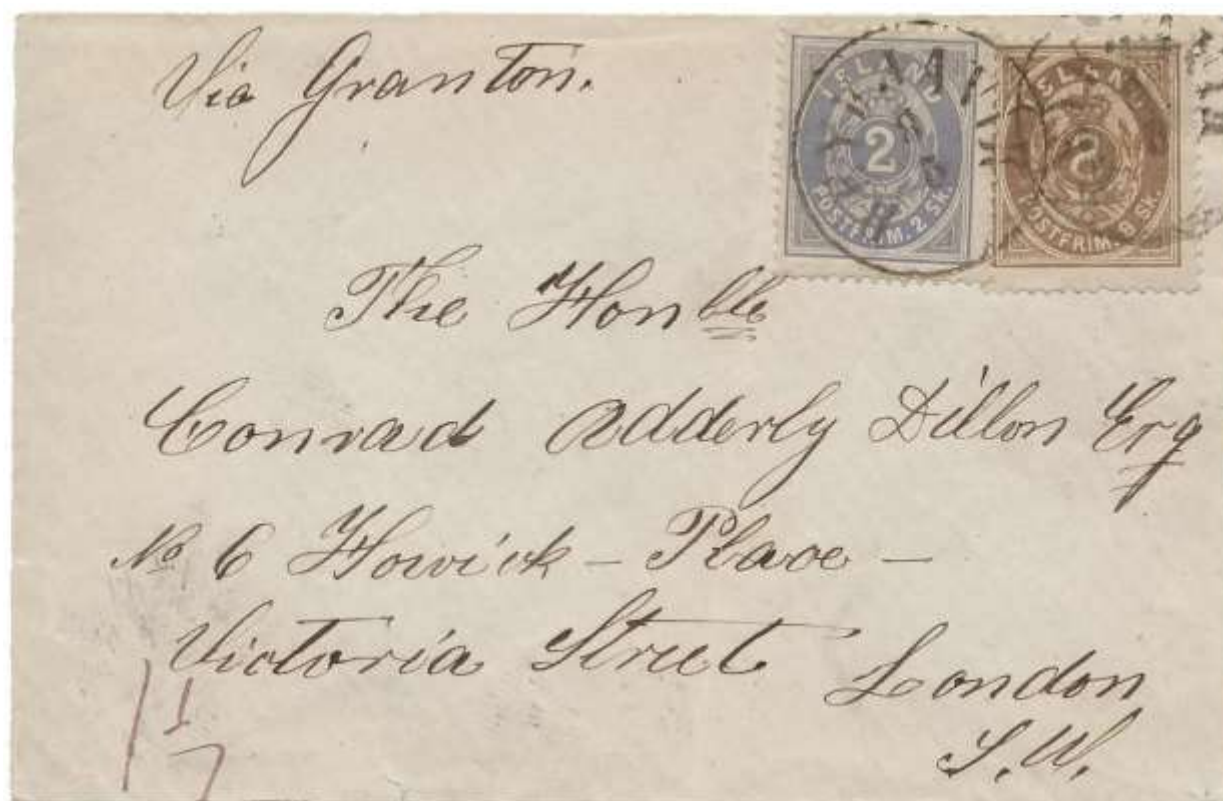 Via Granton.
ISLAND
2
POSTFRIM. 2 SK.
POSTFRIM. 8 SK.
The Honble
Conrad Adderly Dillon Esq
No 6 Howick - Place -
Victoria Street London
S.W.